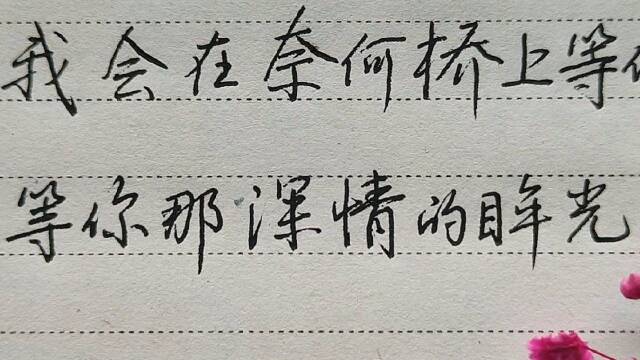 我会在奈何桥上等你
等你那深情的眸光